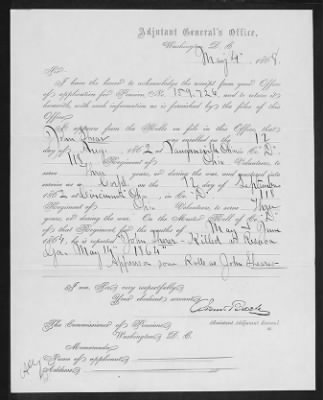 Adjutant General's Office,
Washington, D. C.
May 4th, 1868.
Sir:
I have the honor to acknowledge the receipt from your Office
of application for Pension No. 159.726, and to return it
herewith, with such information as is furnished by the files of this
Office.
It appears from the Rolls on file in this Office, that
John Shear was enrolled on the 12
day of Aug., 1862, at Vaughnsville Ohio in Co. "D"
118 Regiment of Ohio Volunteers, to
serve Three years, or during the war, and mustered into
service as a on the 12 day of September
1862, at Cincinnati Ohio, in Co. "D" 118
Regiment of Ohio Volunteers, to serve Three
years, or during the war. On the Muster Roll of Co. "D"
of that Regiment, for the months of May & June
1864, he is reported John Killed at Resaca
Ga. May 14th 1864"
Appears on some Rolls as John
I am, Sir, very respectfully,
Your obedient servant,
Assistant Adjutant General.
The Commissioner of Pensions,
Washington, D. C.
Memoranda:
Name of applicant,
Address,